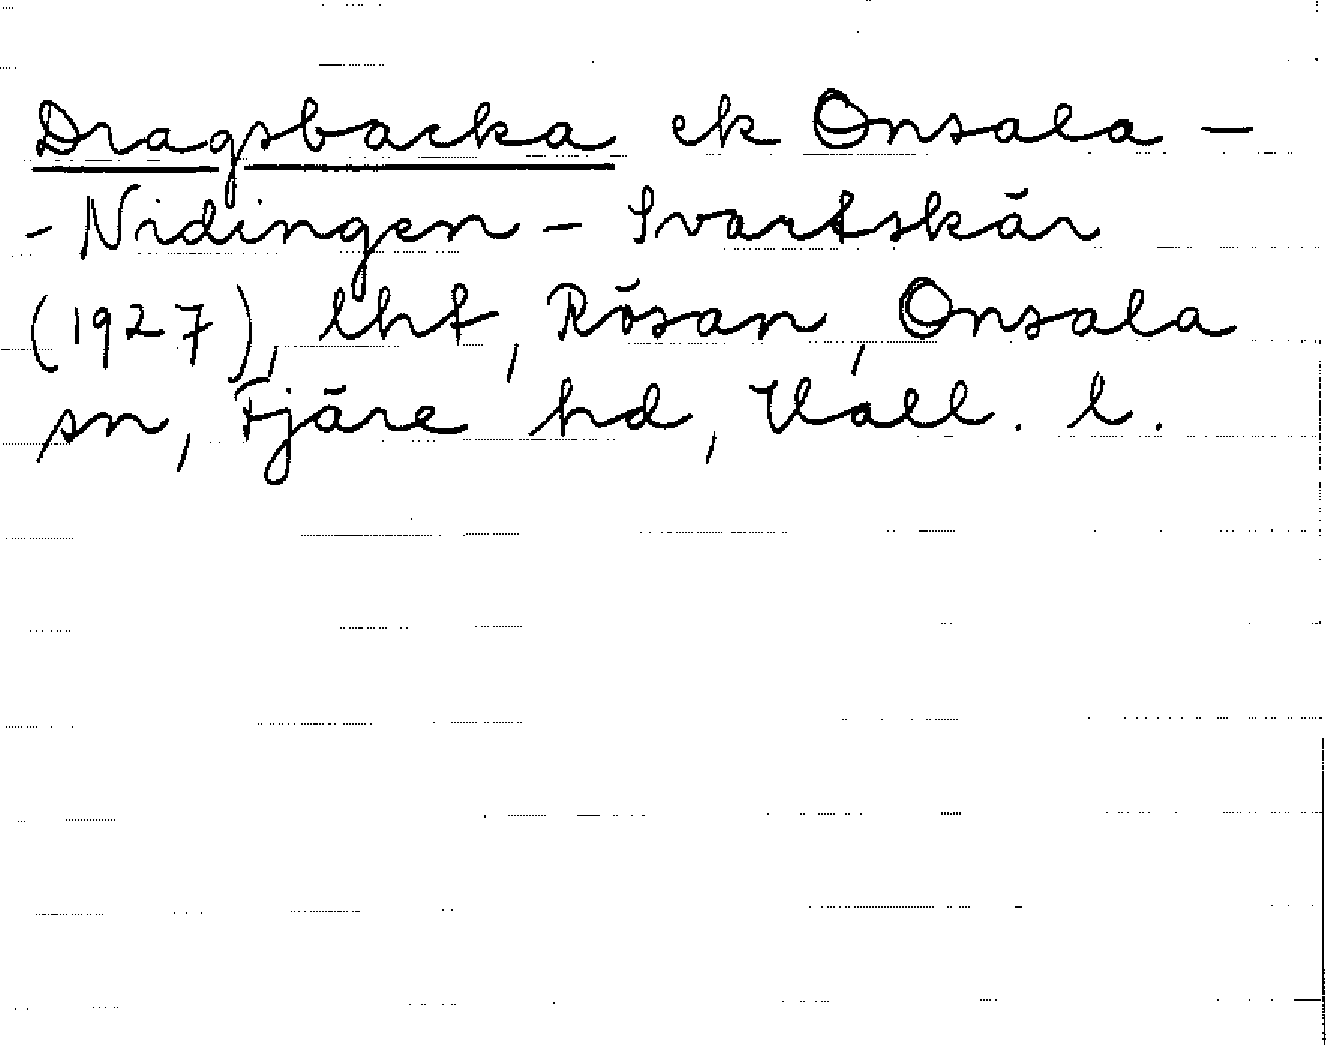 Dragsbacka ek Onsala –
- Nidingen – Svartskär
(1927), lht, Rösan, Onsala
sn, Fjäre hd, Hall. l.